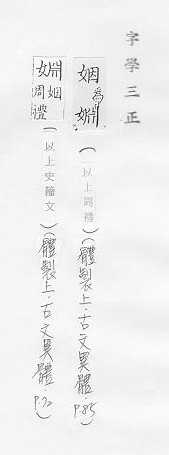 字學三正
姻為婣(以上周禮)(體製上·古文異體·P.85)
婣姻周禮(以上史籀文)(體製上·古文異體·P.72)